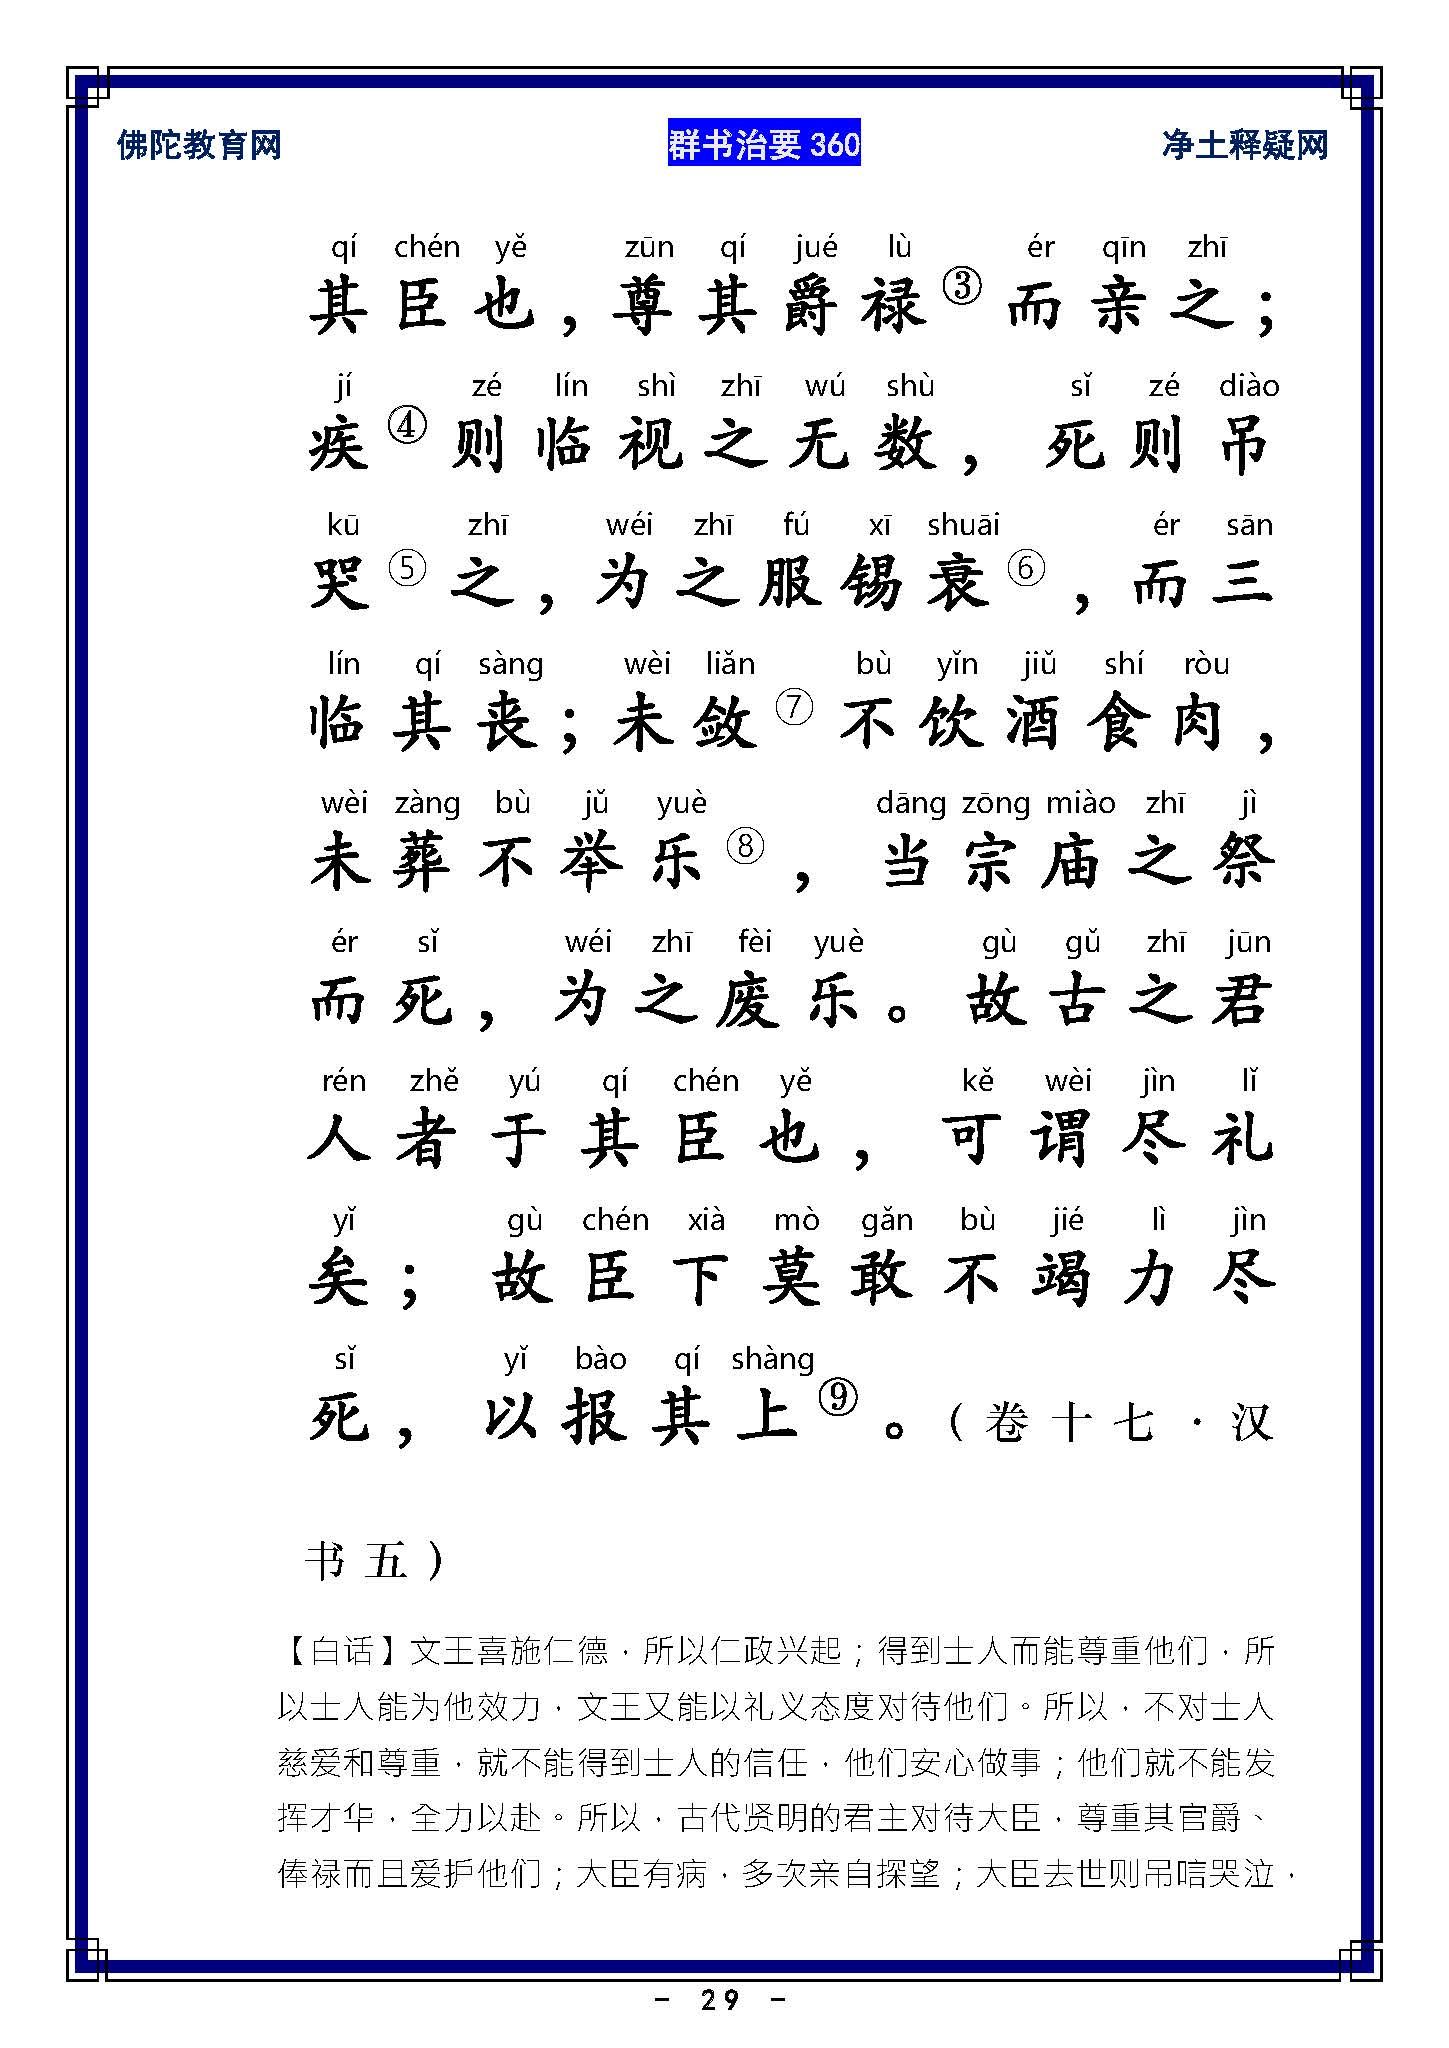 佛陀教育网 群书治要 360 净土释疑网
qí chén yě zūn qí jué lù ér qīn zhī
其臣也，尊其爵禄③而亲之；
jí zé lín shì zhī wú shù sǐ zé diào
疾④则临视之无数，死则吊
kū zhī wéi zhī fú xī shuāi ér sān
哭⑤之，为之服锡衰⑥，而三
lín qí sàng wèi liǎn bù yǐn jiǔ shí ròu
临其丧；未敛⑦不饮酒食肉，
wèi zàng bù jǔ yuè dāng zōng miào zhī jì
未葬不举乐⑧，当宗庙之祭
ér sǐ wéi zhī fèi yuè gù gǔ zhī jūn
而死，为之废乐。故古之君
rén zhě yú qí chén yě kě wèi jìn lǐ
人者于其臣也，可谓尽礼
yǐ gù chén xià mò gǎn bù jié lì jìn
矣；故臣下莫敢不竭力尽
sǐ yǐ bào qí shàng
死，以报其上⑨。（卷十七·汉
书五）
【白话】文王喜施仁德，所以仁政兴起；得到士人而能尊重他们，所
以士人能为他效力，文王又能以礼义态度对待他们。所以，不对士人
慈爱和尊重，就不能得到士人的信任，他们安心做事；他们就不能发
挥才华，全力以赴。所以，古代贤明的君主对待大臣，尊重其官爵、
俸禄而且爱护他们；大臣有病，多次亲自探望；大臣去世则吊唁哭泣，
- 29 -